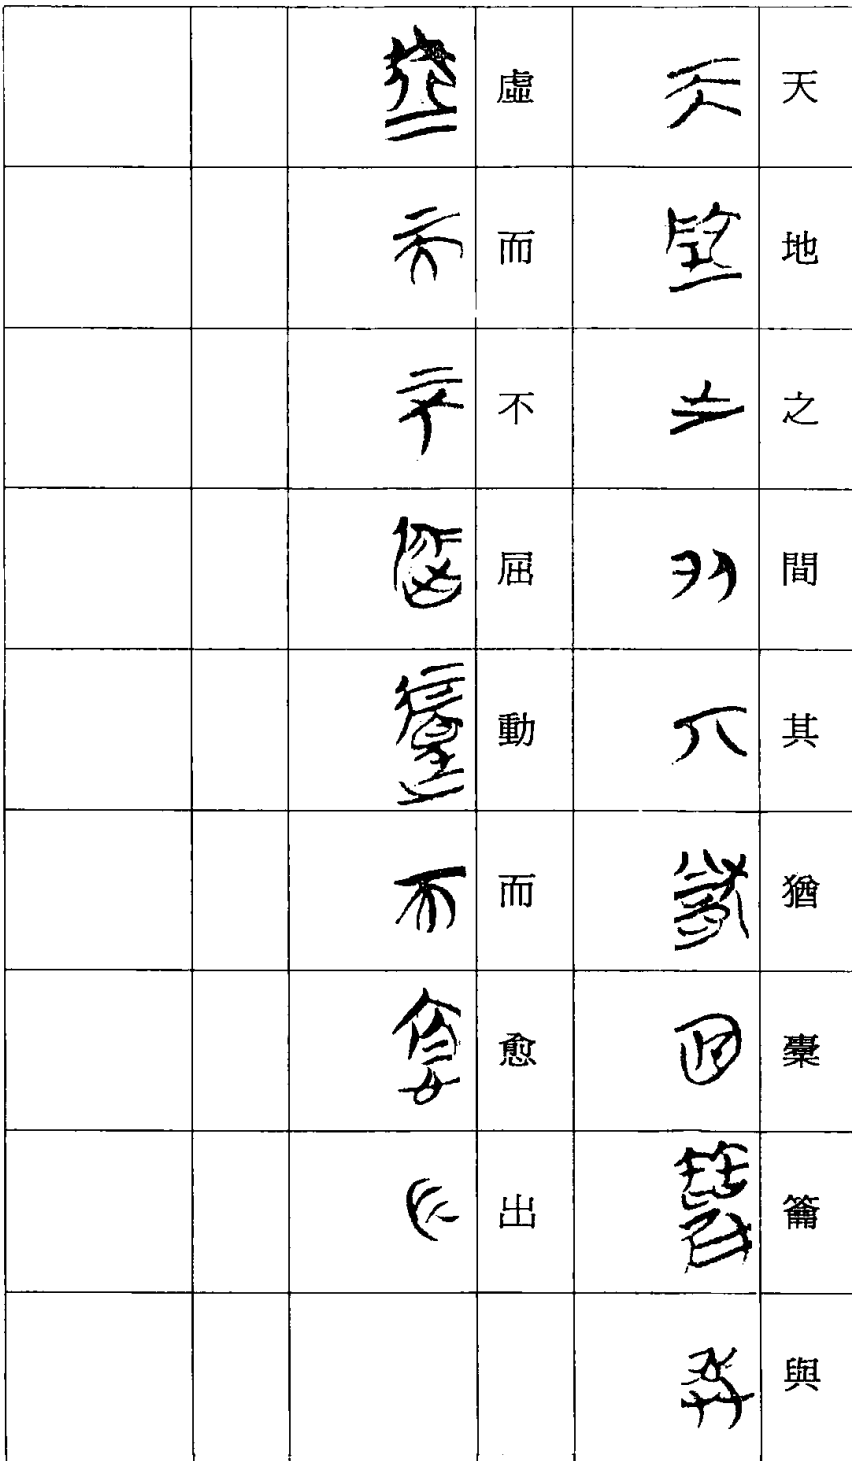 天地之間其猶橐籥與
虛而不屈動而愈出